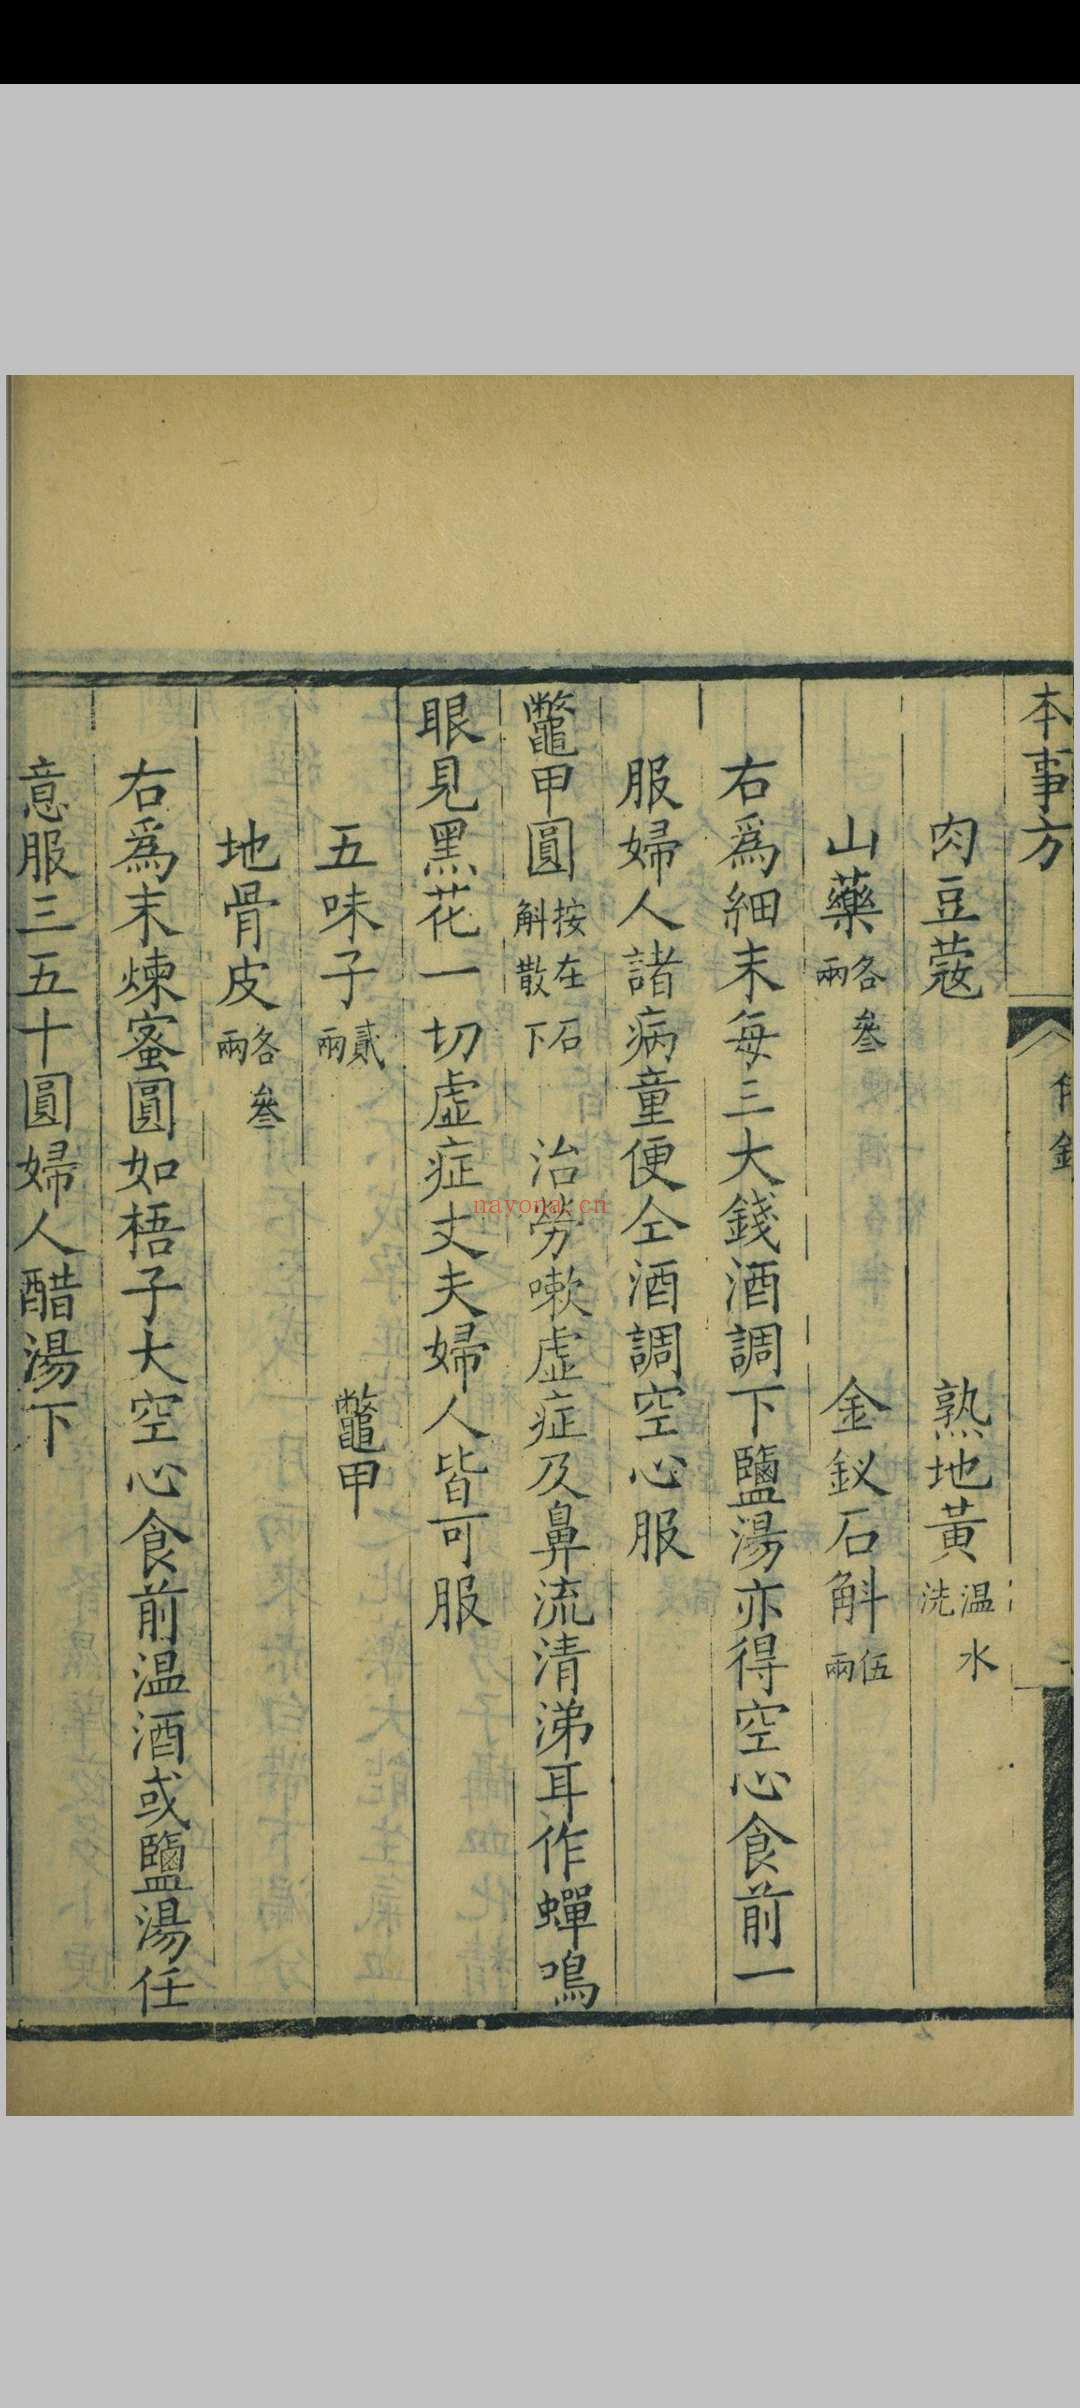 本事方
肉豆蔻 熟地黃 温水洗
山藥 各參兩 金釵石斛 伍兩
右爲細末每三大錢酒調下鹽湯亦得空心食前一
服婦人諸病童便仝酒調空心服
鼈甲圓 按在石斛散下 治勞嗽虛症及鼻流清涕耳作蟬鳴
眼見黑花一切虛症丈夫婦人皆可服
五味子 貳兩 鼈甲
地骨皮 各叄兩
右爲末煉蜜圓如梧子大空心食前温酒或鹽湯任
意服三五十圓婦人醋湯下
nayona.cn